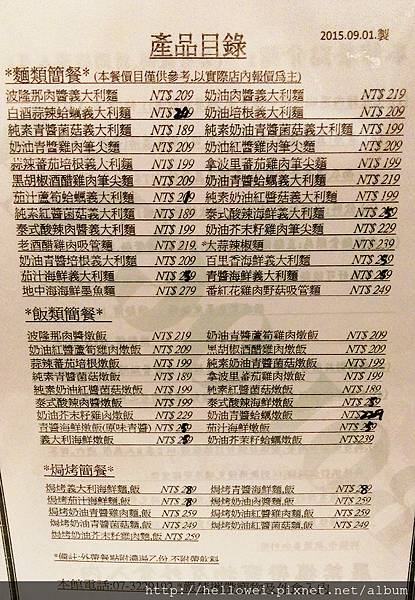 產品目錄
2015.09.01.製
*麵類簡餐* (本餐價目僅供參考,以實際店內報價為主)
波隆那肉醬義大利麵 NT$ 209 奶油肉醬義大利麵 NT$ 219
白酒蒜辣蛤蠣義大利麵 NT$ 奶油培根義大利麵 NT$ 209
純素青醬菌菇義大利麵 NT$ 189 純素奶油青醬菌菇義大利麵 NT$ 199
奶油青醬雞肉筆尖麵 NT$ 209 奶油紅醬雞肉筆尖麵 NT$ 209
蒜辣蕃茄培根義大利麵 NT$ 199 拿波里蕃茄雞肉筆尖麵 NT$ 199
黑胡椒酒醋雞肉筆尖麵 NT$ 209 奶油青醬蛤蠣義大利麵 NT$ 219
茄汁蘆筍蛤蠣義大利麵 NT$ 純素奶油紅醬菌菇義大利麵 NT$ 199
純素紅醬菌菇義大利麵 NT$ 189 泰式酸辣海鮮義大利麵 NT$
泰式酸辣肉醬義大利麵 NT$ 199 奶油芥末籽雞肉筆尖麵 NT$ 229
老酒醋雞肉吸管麵 NT$ 219 *大蒜辣椒麵 NT$ 239
奶油青醬培根義大利麵 NT$ 209 百里香海鮮義大利麵 NT$
茄汁海鮮義大利麵 NT$ 青醬海鮮義大利麵 NT$
地中海海鮮墨魚麵 NT$ 279 番紅花雞肉野菇吸管麵 NT$ 249
*飯類簡餐*
波隆那肉醬燉飯 NT$ 219 奶油青醬蘆筍雞肉燉飯 NT$ 209
奶油紅醬蘆筍雞肉燉飯 NT$ 209 黑胡椒酒醋雞肉燉飯 NT$ 209
蒜辣蕃茄培根燉飯 NT$ 199 純素奶油青醬菌菇燉飯 NT$ 199
純素青醬菌菇燉飯 NT$ 189 拿波里蕃茄雞肉燉飯 NT$ 199
純素奶油紅醬菌菇燉飯 NT$ 199 純素紅醬菌菇燉飯 NT$ 189
泰式酸辣肉醬燉飯 NT$ 199 泰式酸辣海鮮燉飯 NT$
奶油芥末籽雞肉燉飯 NT$ 229 奶油青醬蛤蠣燉飯 NT$
青醬海鮮燉飯(原味青醬) NT$ 茄汁海鮮燉飯 NT$
義大利海鮮燉飯 NT$ 奶油芥末籽蛤蠣燉飯 NT$239
*焗烤簡餐*
焗烤義大利海鮮麵,飯 NT$ 焗烤青醬海鮮麵,飯 NT$
焗烤茄汁海鮮麵,飯 NT$ 焗烤奶油肉醬麵,飯 NT$ 259
焗烤奶油青醬雞肉麵,飯 NT$ 259 焗烤奶油紅醬雞肉麵,飯 NT$ 259
焗烤奶油青醬菌菇麵,飯 NT$ 249 焗烤奶油紅醬菌菇麵,飯 NT$ 249
焗烤奶油芥末籽雞肉麵,飯 NT$ 259
*備註:外帶餐點附濃湯乙份,不附帶飲料
本館電話:07-3229102
http://hellowei.pixnet.net/album